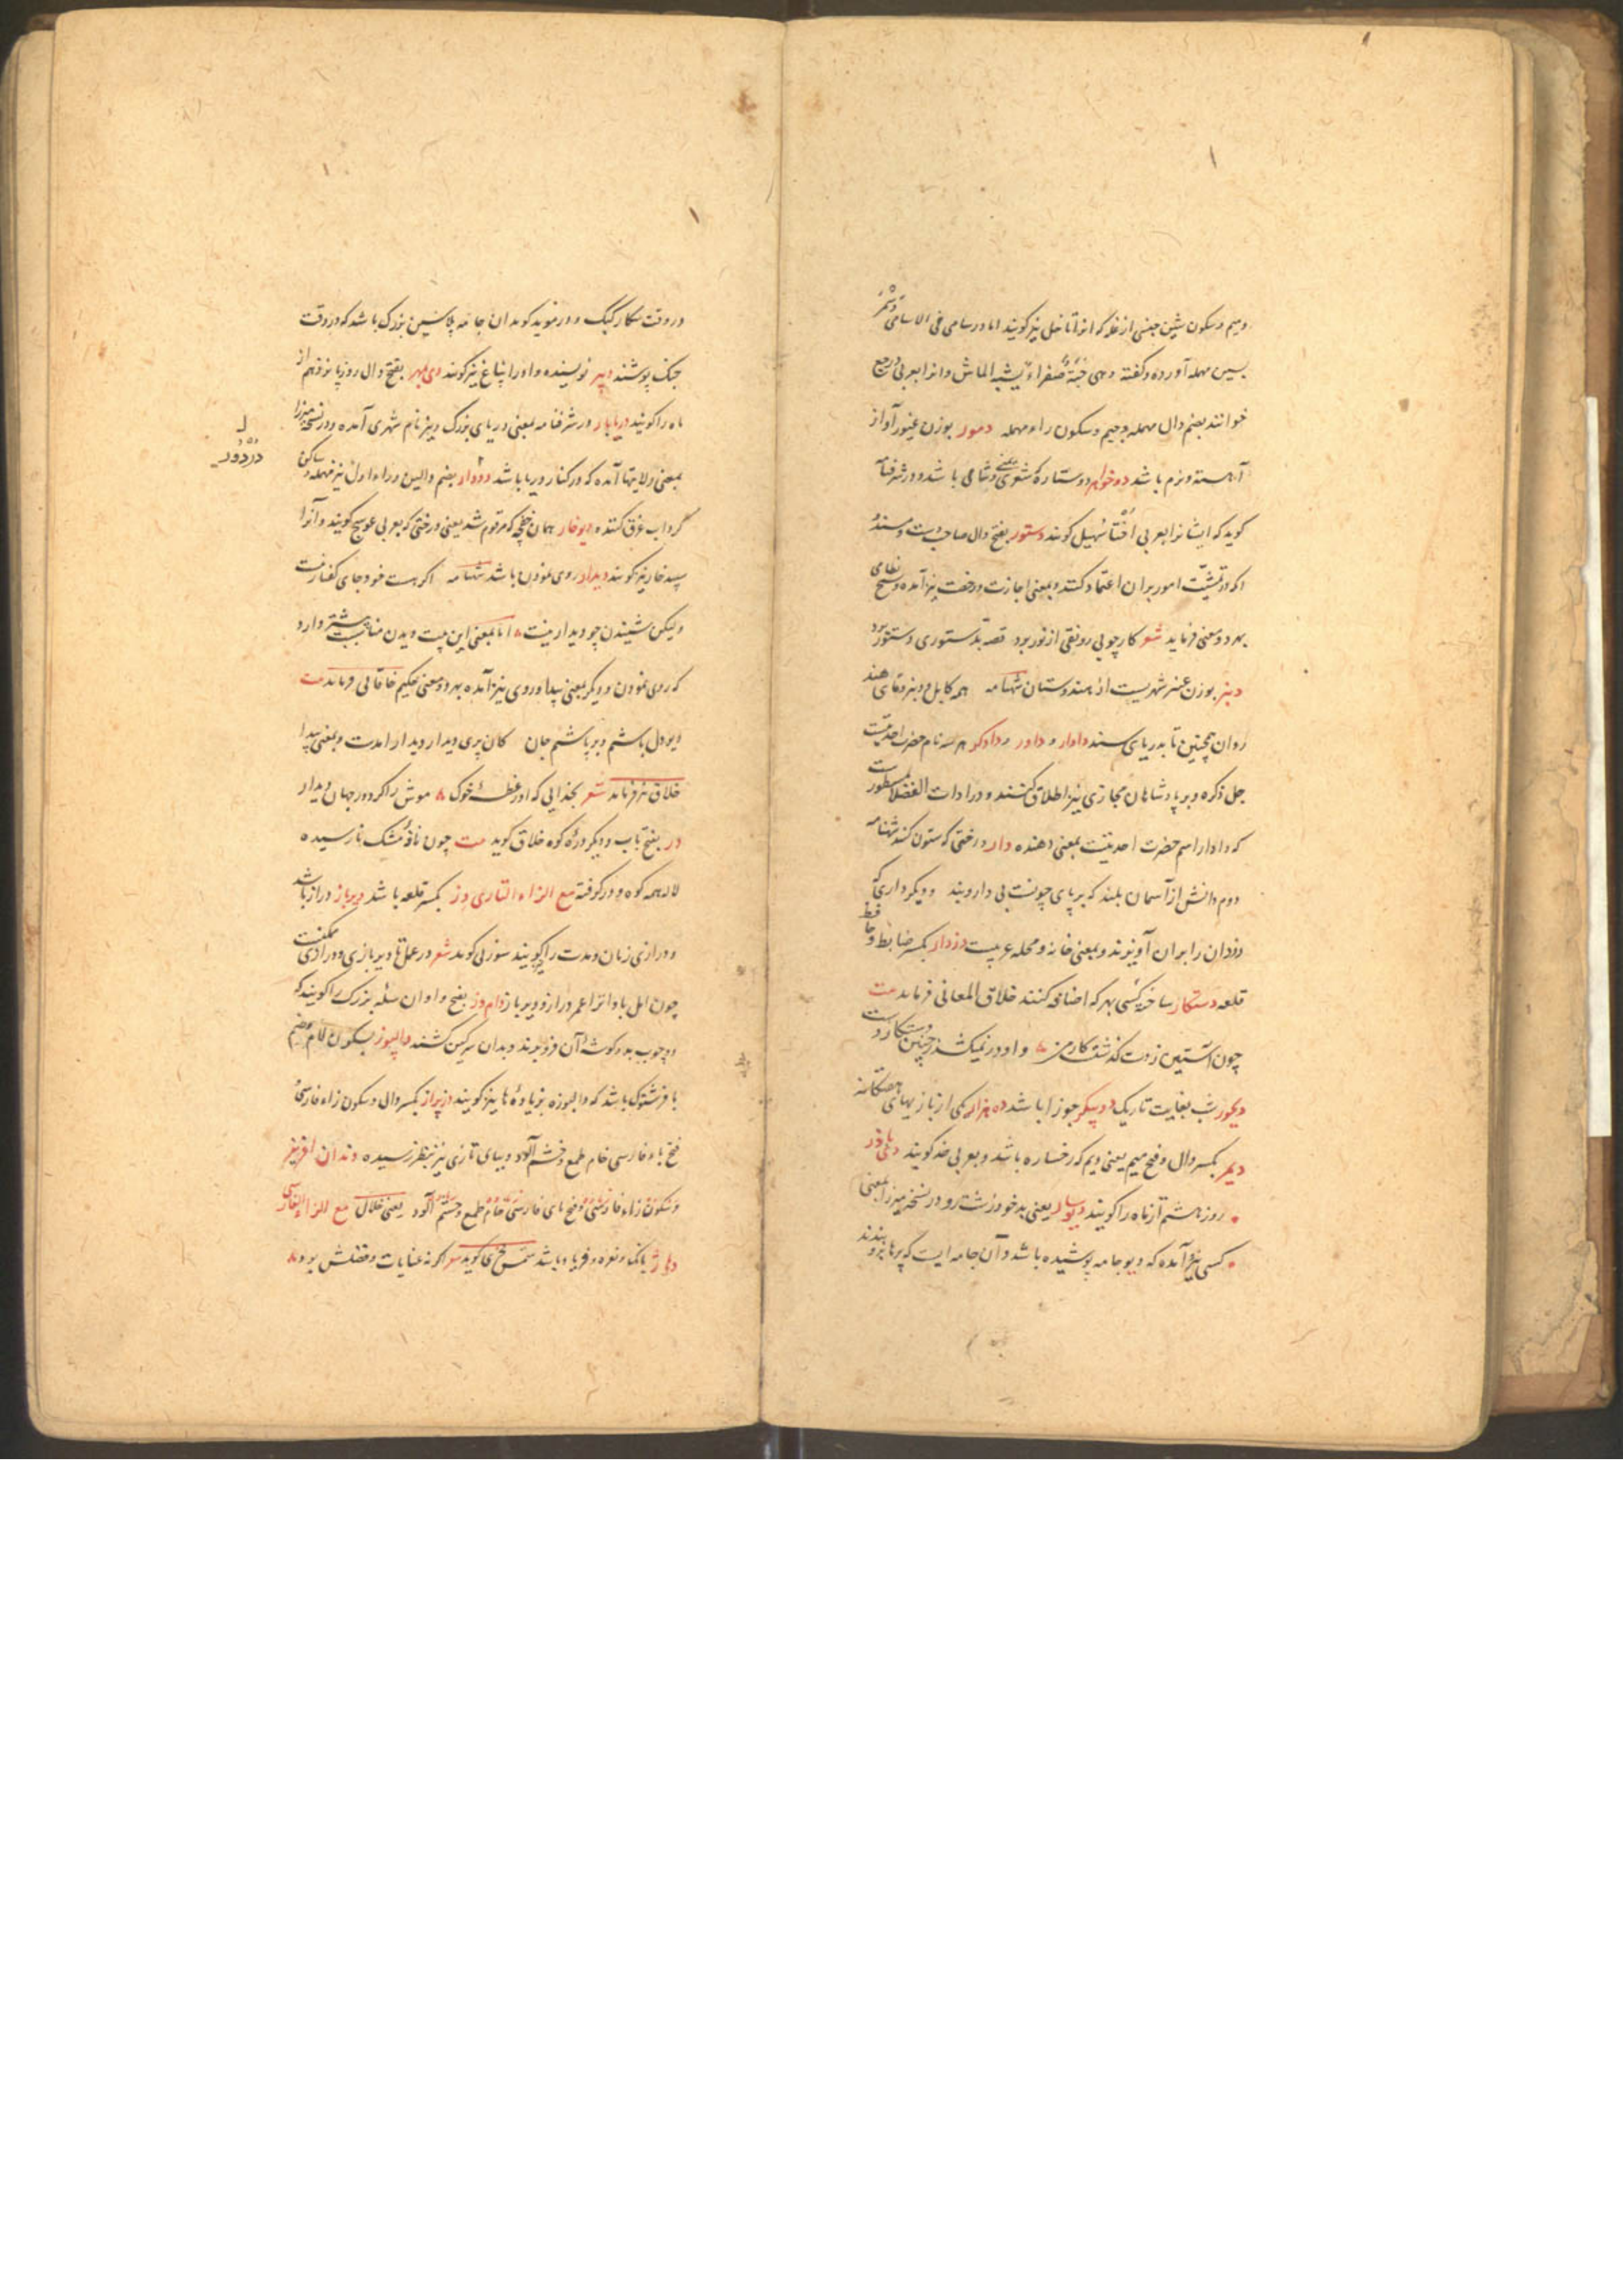 و میم و سکون شین جنسی از غله که انرا تاخل نیز کویند اما در سامی فی الاسامی دشمر
بسین مهمله آورده و کفته وهی حبة صفراء یشبه الماش و انرا بعربی درجع
خوانند بضم دال مهمله و جیم و سکون راء مهمله دمور بوزن غیور آواز
آهسته و نرم باشد دوخواهر دو ستاره شعری یعنی و شامی باشد و در شرفنامه
کوید که ایشانرا بعربی اختا سهیل کویند دستور بفتح دال صاحب دست و مسند
که در تمشیت امور بران اعتماد کنند و بمعنی اجازت و رخصت نیز آمده و شیخ نظامی
بهر دو معنی فرماید شعر کار چو بی رونقی از نور برد قصه بدستوری دستور برد
دنبر بوزن عنبر شهریست از هندوستان شهنامه همه کابل و دنبر و مای هند
روان همچنین تا بدریای سند دادار و داور و دادکر هر سه نام حضرت احدیتست
جل ذکره و بر پادشاهان مجازی نیز اطلاق کنند و در ادات الفضلا مسطورست
که دادار اسم حضرت احدیتست بمعنی دهنده دار درختی که ستون کنند شهنامه
دوم دانش از آسمان بلند که برپای چونست بی دار و بند و دیکر داری که
دزدان را بران آویزند و بمعنی خانه و محله عربیست دزدار بکسر ضابط و حافظ
قلعه دستکار ساخته کسی بهر که اضافه کنند خلاق المعانی فرماید بیت
چون آستین ز دست کذشتست کار من و او در نمیکشد ز چنین دستکار دست
دیجور شب بغایت تاریک دو پیکر جوزا باشد ده هزار یکی از بازیهای هفتکانه
دیمر بکسر دال و فتح میم یعنی دیم که رخساره باشد و بعربی خد کویند دی باذر
روز هشتم از ماه را کویند دیوسار یعنی بد خو و زشت رو و در نسخه میرزا بمعنی
کسی نیز آمده که دیو جامه پوشیده باشد و آن جامه ایست که پرها برو بندند
در وقت شکار کبک و در موید کوید ان جامه پلاسین بزرک باشد که در وقت
جنک پوشند دبیر نویسنده و او را پتاغ نیز کویند دی بمهر بفتح دال روز پانزدهم از
ماه را کویند دریابار در شرفنامه بمعنی دریای بزرک و نیز نام شهری آمده و در نسخه میرزا
بمعنی ولایتها آمده که در کنار دریا باشد دردار بضم دالین و راء اول نیز مهمله و ساکن
دردور
کرداب غرق کننده دیوخار همان خفچه که مرقوم شد یعنی درختی که بعربی عوسج کویند و آنرا
سپید خار نیز کویند دیدار روی نمودن باشد شهنامه اکر هست خود جای کفتار نیست
ولیکن شنیدن چو دیدار نیست اما بمعنی این بیت دیدن مناسبت بیشتر دارد
که روی نمودن و دیکر بمعنی پیدا و روی نیز آمده بهر دو معنی حکیم خاقانی فرماید بیت
دیو دل باشم و بر پاشم جان کان پری دیدار دیدار امدست و بمعنی پیدا
خلاق نیز فرماید شعر بخدایی که از عطسه خوک موش را کرد در جهان دیدار
در بفتح باب و دیکر دره کوه خلاق کوید بیت چون نافه مشک نارسیده
لاله همه کوه و در کوفته مع الزاء التازی دز بکسر قلعه باشد دیرباز دراز باشد
و درازی زمان و مدت را کویند سوزنی کوید شعر در عمل تا دیر بازی و درازی ممکنست
چون امل بادا ترا عمر دراز و دیرباز دام دز بفتح واو ان سله بزرک را کویند که
دو چوب بدو کوشه آن فرو برند و بدان سرکین کشند دالپوز بسکون لام و ضم
با فرشتوک باشد که دالبوزه بزیاده ها نیز کویند دژپراز بکسر دال و سکون زاء فارسی
فتح باء فارسی خام طمع و خشم آلود و ببای تازی نیز بنظر رسیده دندان افریز
یعنی خلال مع الزاء الفارسی
دراژ بانک و نعره و فریاد باشد شمس فخری کوید شعر اکر نه عنایات و فضلش بود